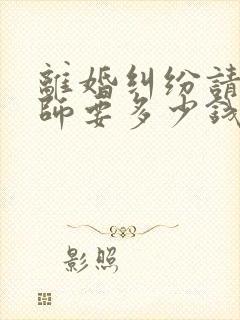 離婚糾纷請
師要多少錢
影照